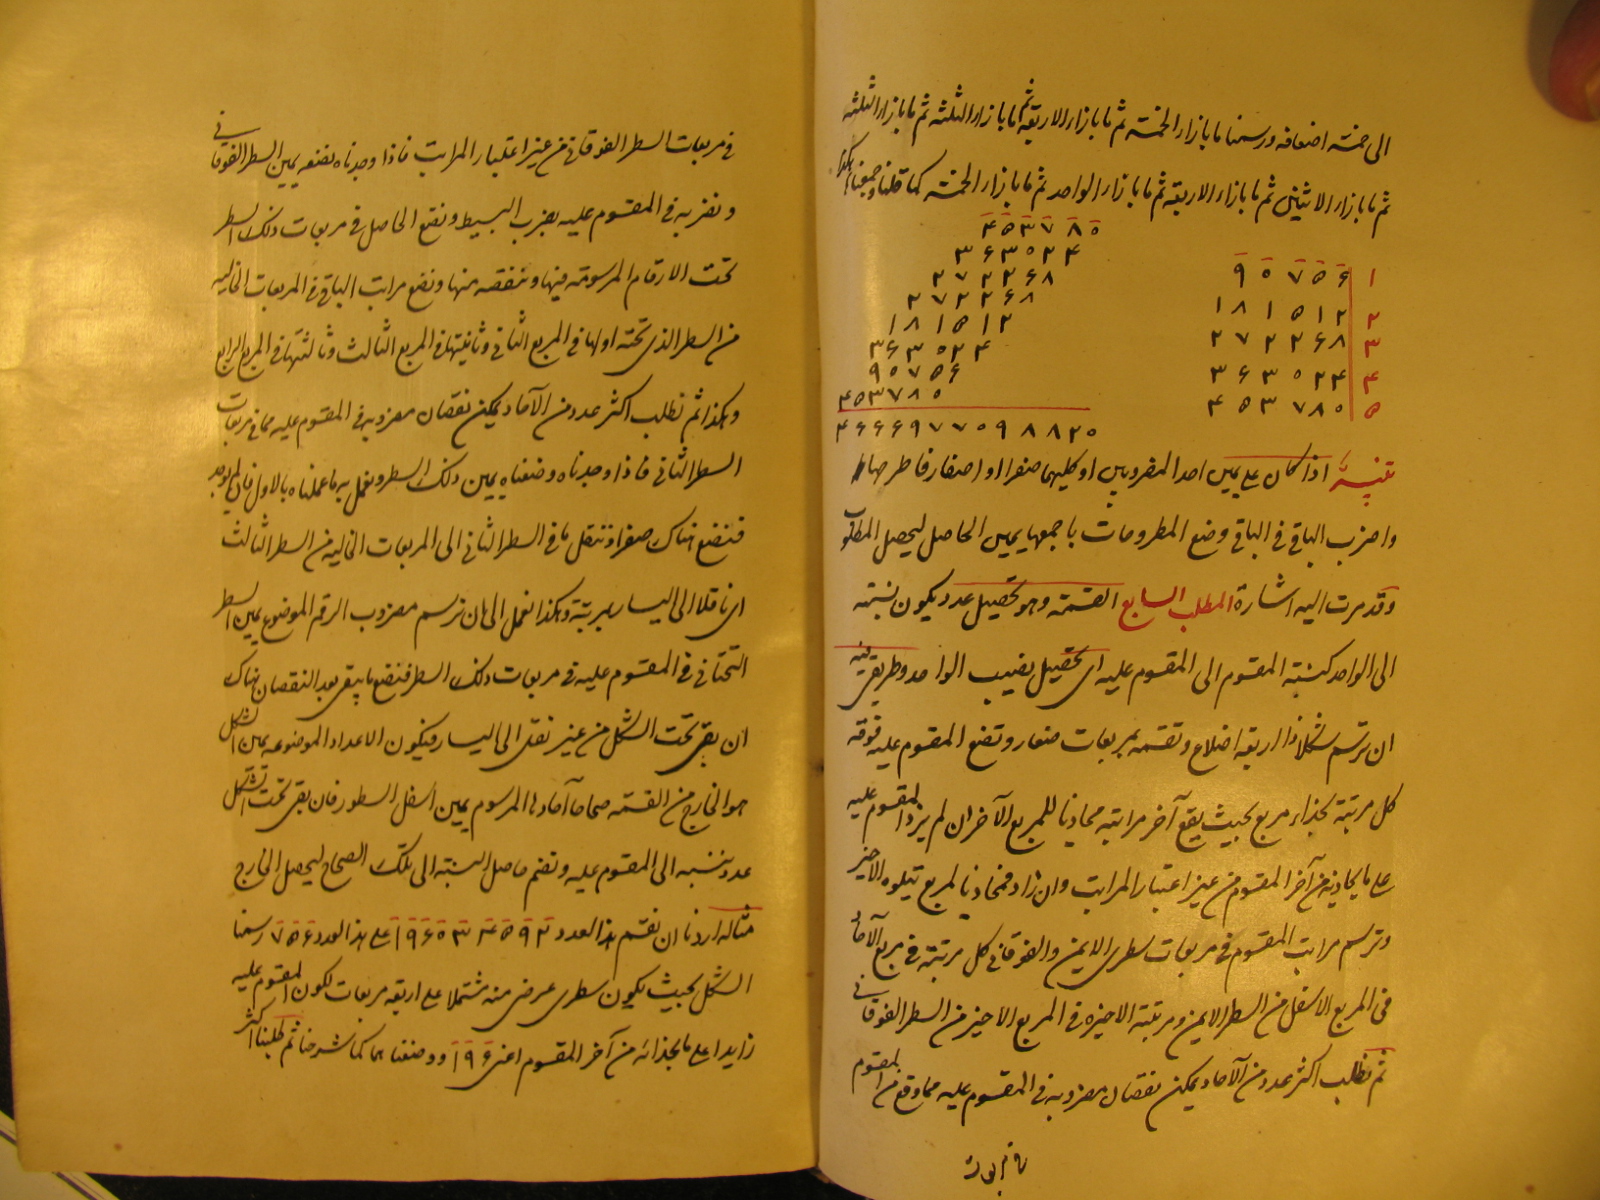 الى خمسة اضعافه ورسمنا ما بازاء الخمسة ثم ما بازاء الاربعة ثم ما بازاء الثلثة ثم ما بازاء الثلثة
ثم ما بازاء الاثنين ثم ما بازاء الاربعة ثم ما بازاء الواحد ثم ما بازاء الخمسة كما قلنا وجمعناه هكذا
۴۵۳۷۸۰
۳۶۳۰۲۴
۲۷۲۲۶۸
۲۷۲۲۶۸
۱۸۱۵۱۲
۳۶۳۰۲۴
۹۰۷۵۶
۴۵۳۷۸۰
۴۶۶۶۹۷۷۰۹۸۸۲۰
۹۰۷۵۶ ۱
۱۸۱۵۱۲ ۲
۲۷۲۲۶۸ ۳
۳۶۳۰۲۴ ۴
۴۵۳۷۸۰ ۵
تنبيه اذا كان على يمين احد المضروبين او كليهما صفرا او اصفار فاطرحها
واضرب الباقى فى الباقى وضع المطروحات باجمعها يمين الحاصل ليحصل المطلوب
وقد مرت اليه اشارة المطلب السابع القسمة وهو تحصيل عدد يكون نسبته
الى الواحد كنسبة المقسوم الى المقسوم عليه اى تحصيل نصيب الواحد وطريقه
ان نرسم شكلا ذا اربعة اضلاع ونقسمه بمربعات صغار ونضع المقسوم عليه فوقه
كل مرتبة بحذاء مربع بحيث يقع آخر مراتبه محاذيا للمربع الآخر ان لم يزد المقسوم عليه
على ما يحاذيه من آخر المقسوم من غير اعتبار المراتب وان زاد فمحاذيا لمربع يتلوه الاخير
ونرسم مراتب المقسوم فى مربعات سطرى الايمن والفوقانى كل مرتبة فى مربع الآحاد
فى المربع الاسفل من السطر الايمن ومرتبة الاخيرة فى المربع الاخير من السطر الفوقانى
ثم نطلب اكثر عدد من الآحاد يمكن نقصان مضروبه فى المقسوم عليه مما وقع من المقسوم
فى مربعات
فى مربعات السطر الفوقانى من غير اعتبار المراتب فاذا وجدناه نضعه يمين السطر الفوقانى
ونضربه فى المقسوم عليه بضرب البسيط ونضع الحاصل فى مربعات ذلك السطر
تحت الارقام المرسومة فيها وننقصه منها ونضع مراتب الباقى فى المربعات الخالية
من السطر الذى تحته اولها فى المربع الثانى وثانيتها فى المربع الثالث وثالثتها فى المربع الرابع
وهكذا ثم نطلب اكثر عدد من الآحاد يمكن نقصان مضروبه فى المقسوم عليه مما فى مربعات
السطر الثانى فاذا وجدناه وضعناه يمين ذلك السطر ونعمل به ما عملناه بالاول فان لم يوجد
فنضع هناك صفرا وننقل ما فى السطر الثانى الى المربعات الخالية من السطر الثالث
اى ناقلا الى اليسار بمرتبة وهكذا نعمل الى ان نرسم مضروب الرقم الموضوع يمين السطر
التحتانى فى المقسوم عليه فى مربعات ذلك السطر فنضع ما يبقى بعد النقصان هناك
ان بقى تحت الشكل من غير نقل الى اليسار فيكون الاعداد الموضوعة يمين الشكل
هو الخارج من القسمة صحاحا آحادها المرسوم يمين اسفل السطور فان بقى تحت الشكل
عدد ننسبه الى المقسوم عليه ونضم حاصل النسبة الى تلك الصحاح ليحصل الخارج
مثاله اردنا ان نقسم هذا العدد ۱۹۶۵۳۴۵۹۲ على هذا العدد ۷۵۶ رسمنا
الشكل بحيث يكون سطرى عرض منه مشتملا على اربعة مربعات لكون المقسوم عليه
زايدا على ما بحذائه من آخر المقسوم اعنى ۱۹۶ ووضعناهما كما شرحنا ثم طلبنا اكثر